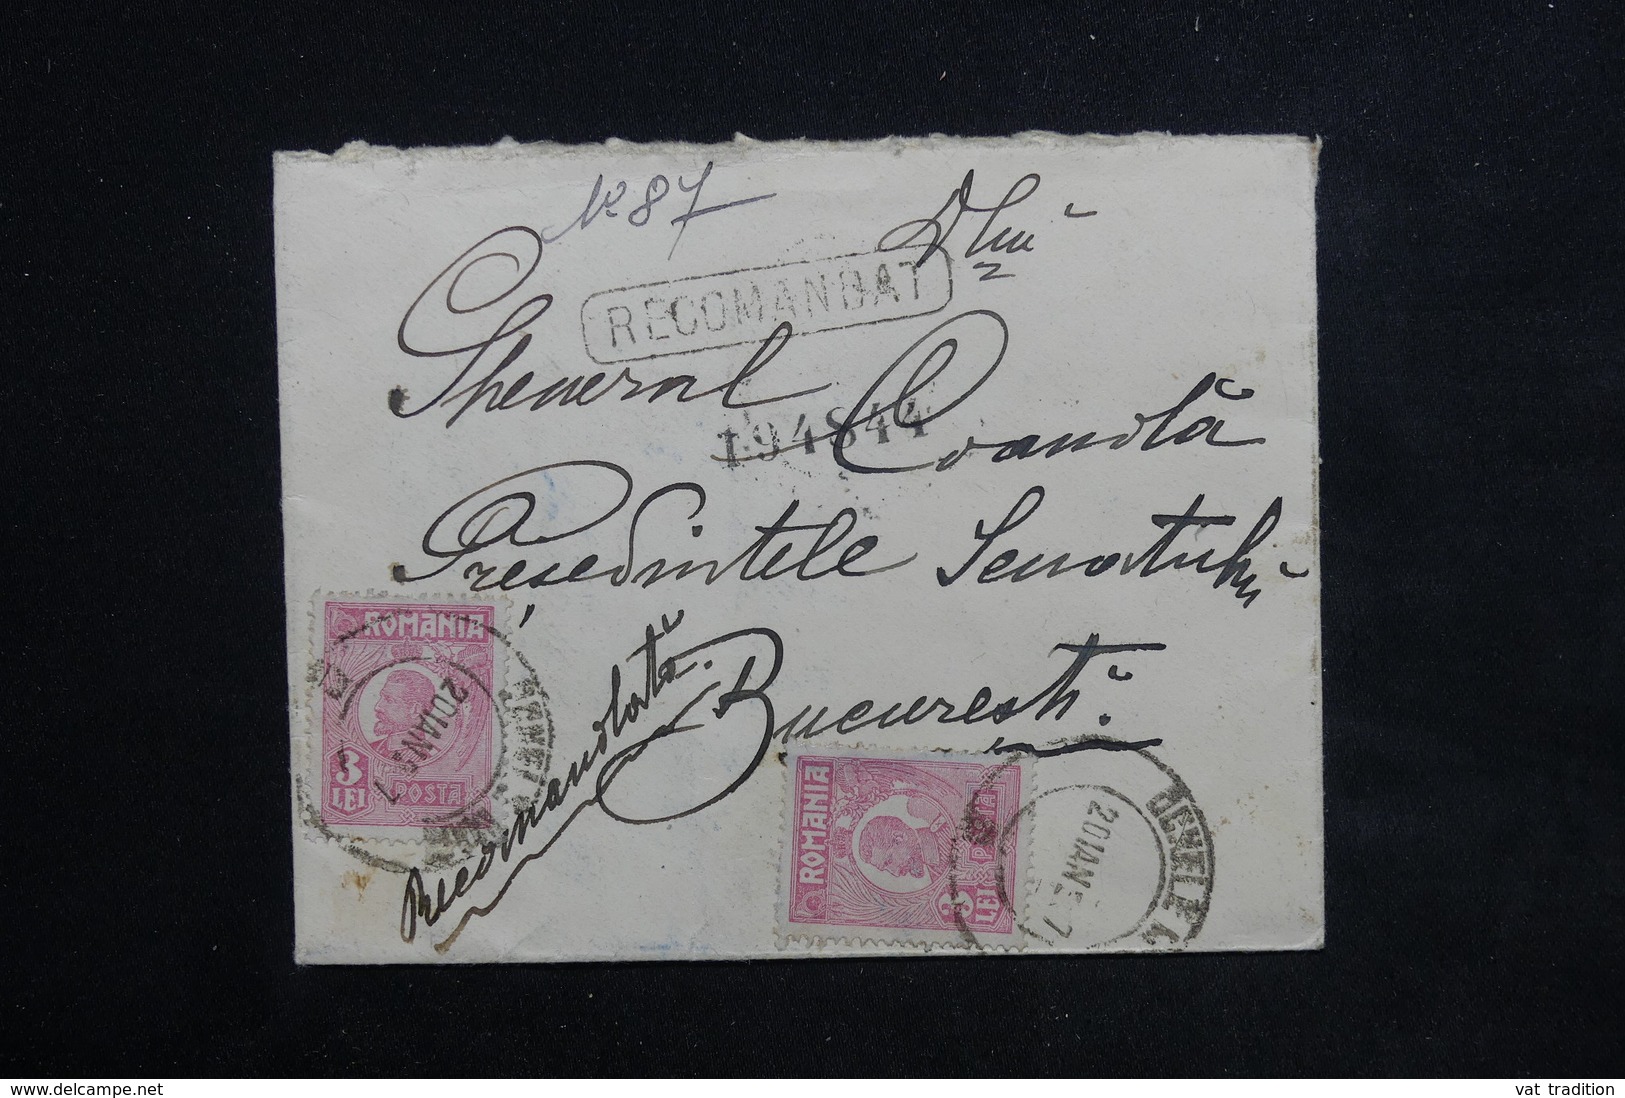 No 87
Dlui
RECOMANDAT
General Coandă
194844
Președintele Senatului
București
Recomandată
ROMANIA
3
LEI
POSTA
20 IAN
ROMANIA
3
LEI
POSTA
20 IAN
delcampe.net
vat tradition